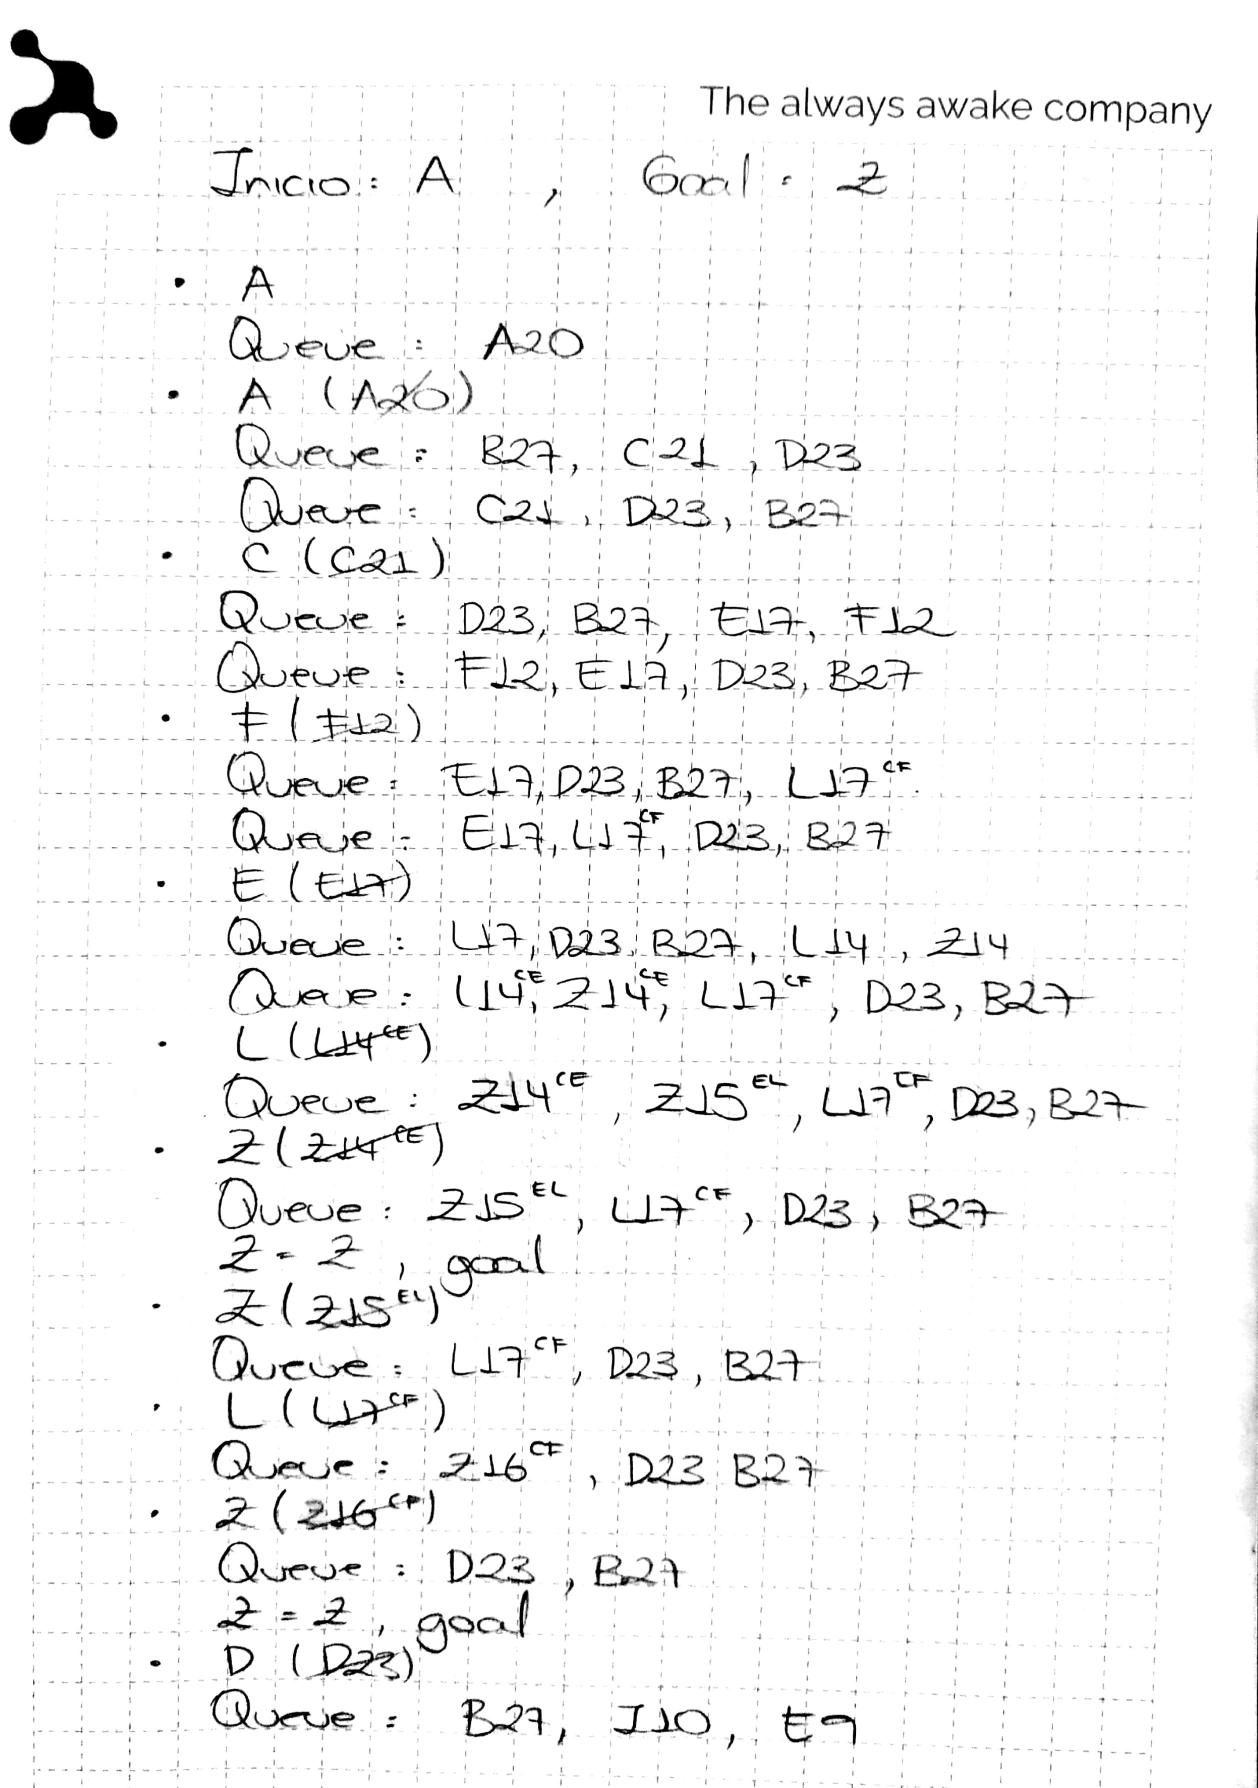 The always awake company
Inicio: A , Goal: Z
• A
Queue: A20
• A (A20)
Queue: B27, C21, D23
Queue: C21, D23, B27
• C (C21)
Queue: D23, B27, E17, F12
Queue: F12, E17, D23, B27
• F (F12)
Queue: E17, D23, B27, L17 CF
Queue: E17, L17 CF, D23, B27
• E (E17)
Queue: L17, D23, B27, L14, Z14
Queue: L14 CE, Z14 CE, L17 CF, D23, B27
• L (L14 CE)
Queue: Z14 CE, Z15 EL, L17 CF, D23, B27
• Z (Z14 CE)
Queue: Z15 EL, L17 CF, D23, B27
Z = Z, goal
• Z (Z15 EL)
Queue: L17 CF, D23, B27
• L (L17 CF)
Queue: Z16 CF, D23 B27
• Z (Z16 CF)
Queue: D23, B27
Z = Z, goal
• D (D23)
Queue: B27, I10, E9